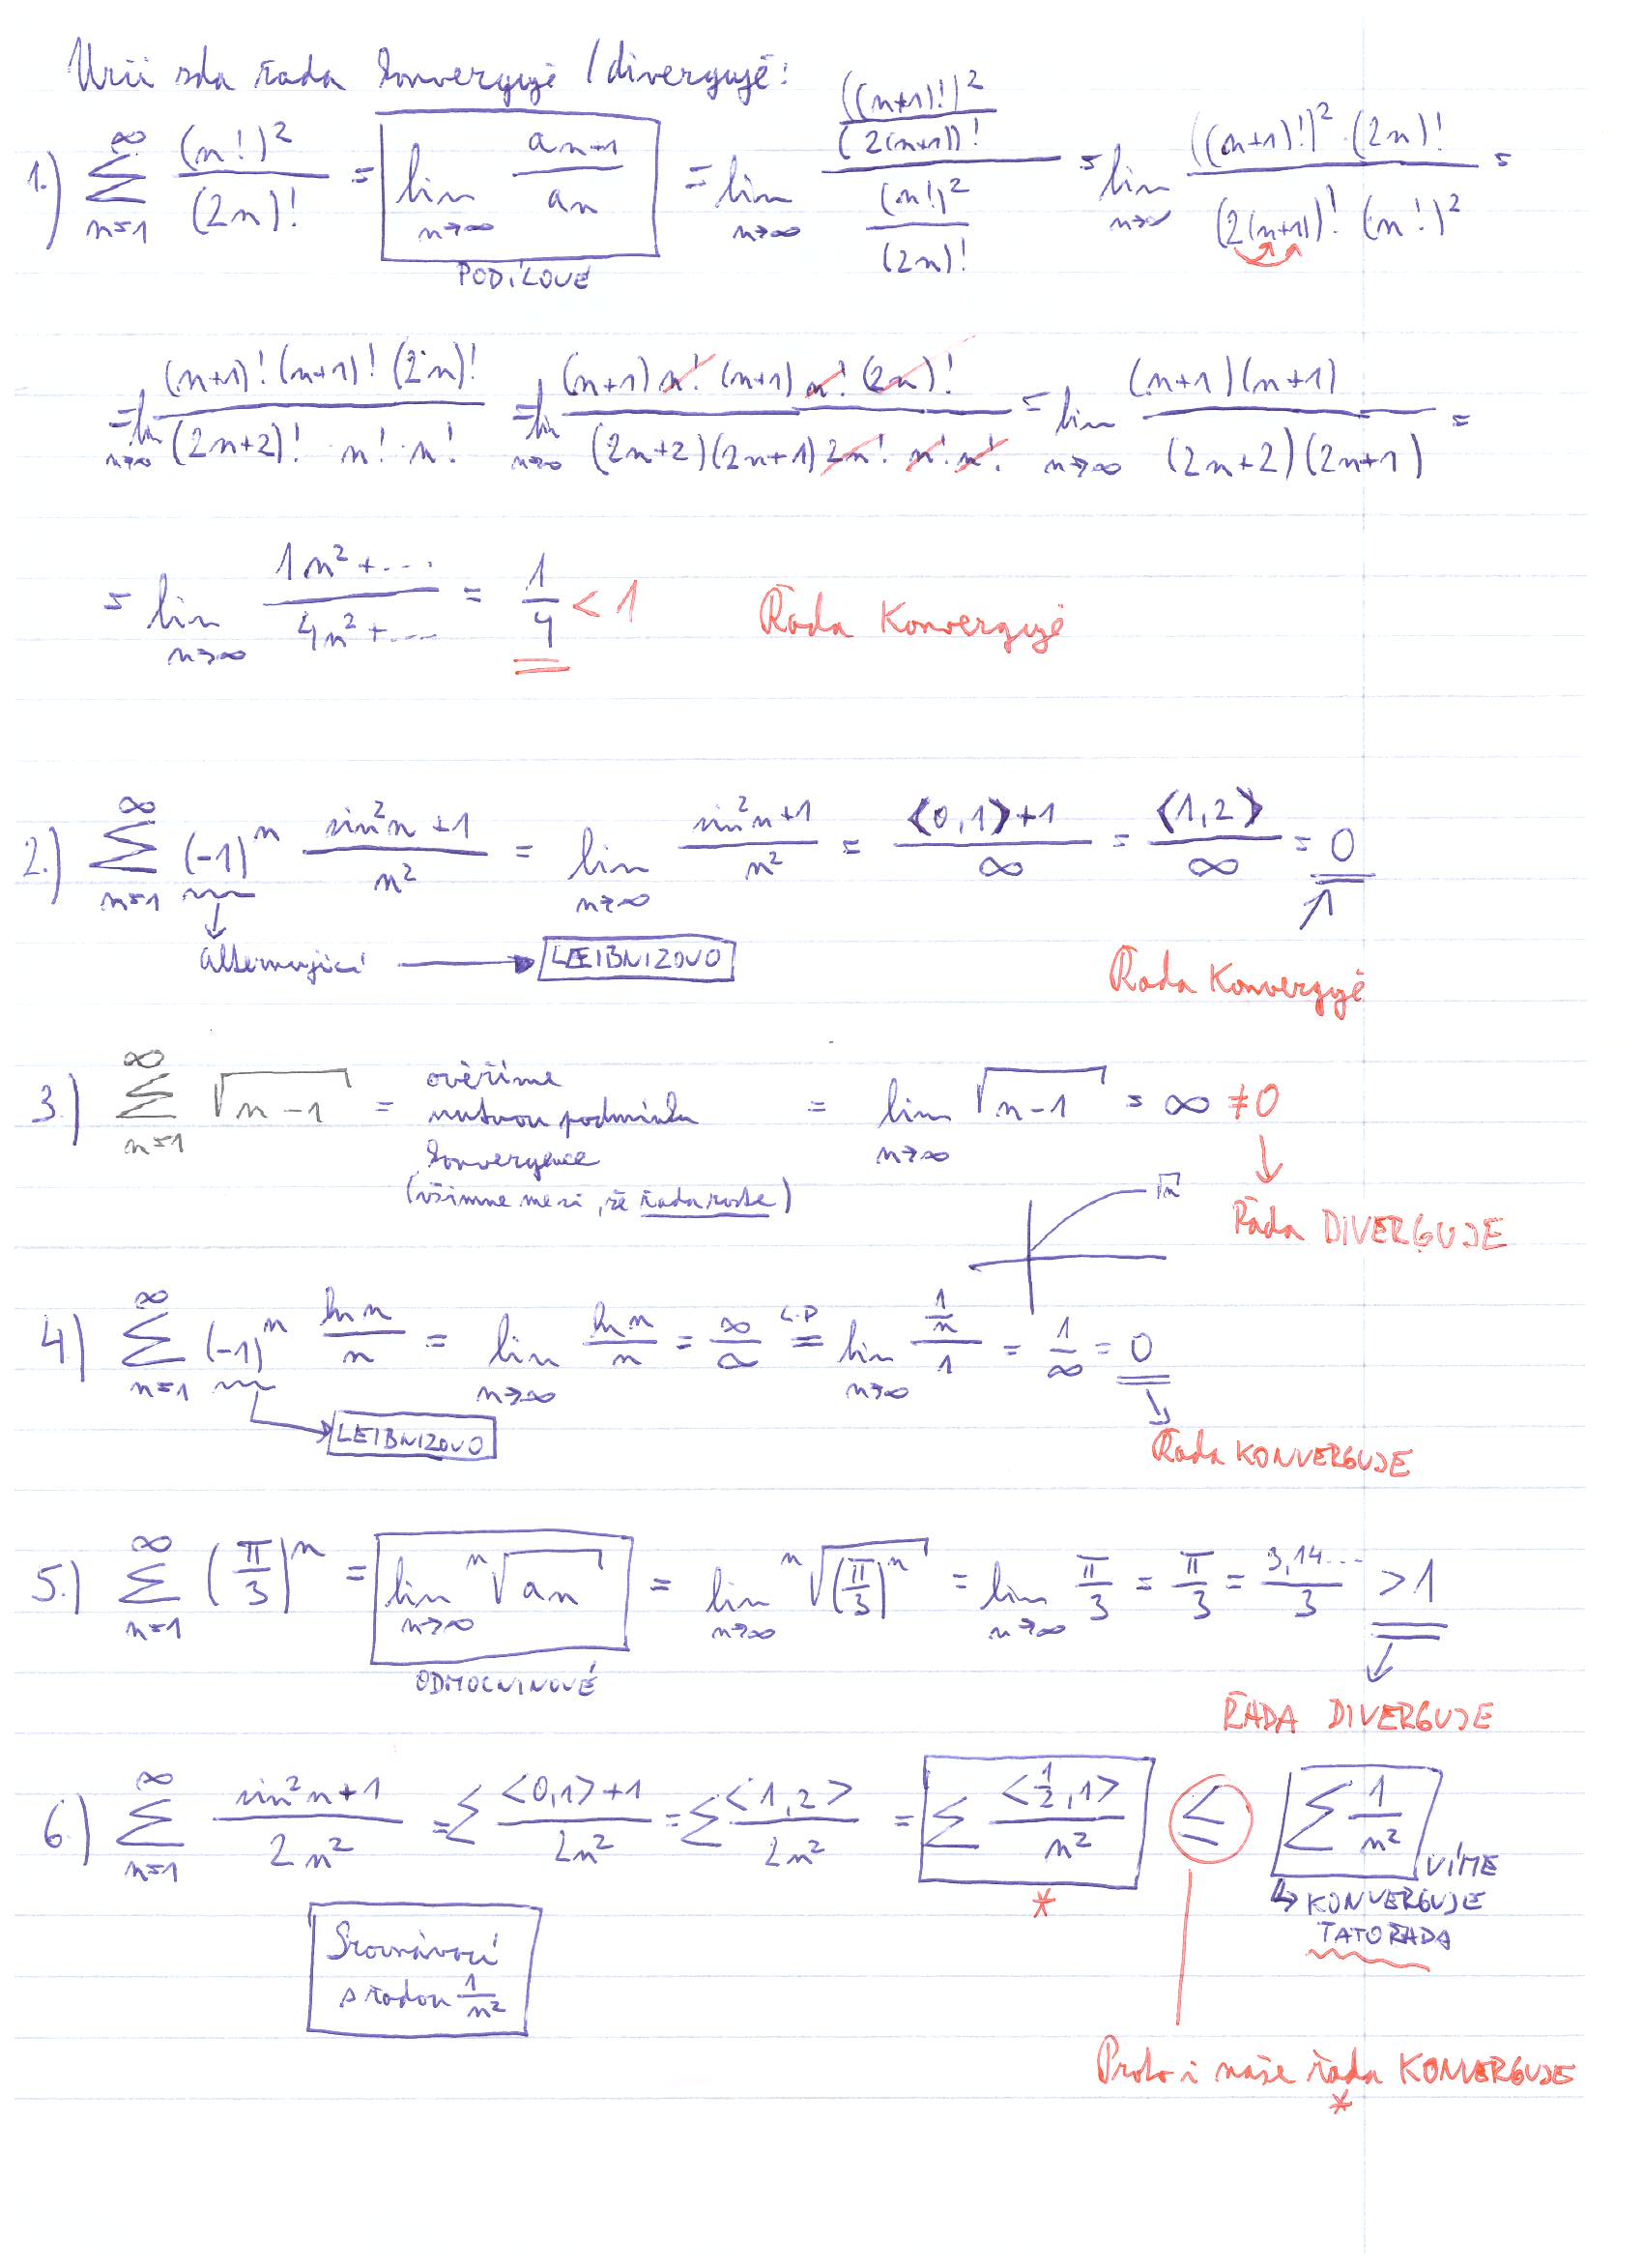 Urči zda řada konverguje / diverguje:
1.) ∑_{n=1}^{∞} (n!)²/(2n)! = lim_{n→∞} a_{n+1}/a_n = lim_{n→∞} (((n+1)!)²/(2(n+1))!)/((n!)²/(2n)!) = lim_{n→∞} ((n+1)!)²·(2n)!/((2(n+1))! (n!)²) =
PODÍLOVÉ
= lim_{n→∞} (n+1)!(n+1)!(2n)!/((2n+2)! · n! · n!) = lim_{n→∞} (n+1) n! (n+1) n! (2n)!/((2n+2)(2n+1) 2n! n! n!) = lim_{n→∞} (n+1)(n+1)/((2n+2)(2n+1)) =
= lim_{n→∞} (1n²+...)/(4n²+...) = 1/4 < 1 Řada Konverguje
2.) ∑_{n=1}^{∞} (-1)^n (sin²n+1)/n² = lim_{n→∞} (sin²n+1)/n² = (⟨0,1⟩+1)/∞ = ⟨1,2⟩/∞ = 0
alternující → LEIBNIZOVO
Řada Konverguje
3.) ∑_{n=1}^{∞} √(n-1) = ověříme nutnou podmínku konvergence = lim_{n→∞} √(n-1) = ∞ ≠ 0
(všimneme si, že řada roste)
√n
Řada DIVERGUJE
4.) ∑_{n=1}^{∞} (-1)^n ln n/n = lim_{n→∞} ln n/n = ∞/∞ =^{L.P} lim_{n→∞} (1/n)/1 = 1/∞ = 0
LEIBNIZOVO
Řada KONVERGUJE
5.) ∑_{n=1}^{∞} (π/3)^n = lim_{n→∞} ⁿ√a_n = lim_{n→∞} ⁿ√((π/3)^n) = lim_{n→∞} π/3 = π/3 = 3,14.../3 > 1
ODMOCNINOVÉ
ŘADA DIVERGUJE
6.) ∑_{n=1}^{∞} (sin²n+1)/(2n²) = ∑ (<0,1>+1)/(2n²) = ∑ <1,2>/(2n²) = ∑ <1/2,1>/n² ≤ ∑ 1/n² VÍME
*
↳ KONVERGUJE
TATO ŘADA
Srovnávací
s řadou 1/n²
Proto i naše řada KONVERGUJE
*